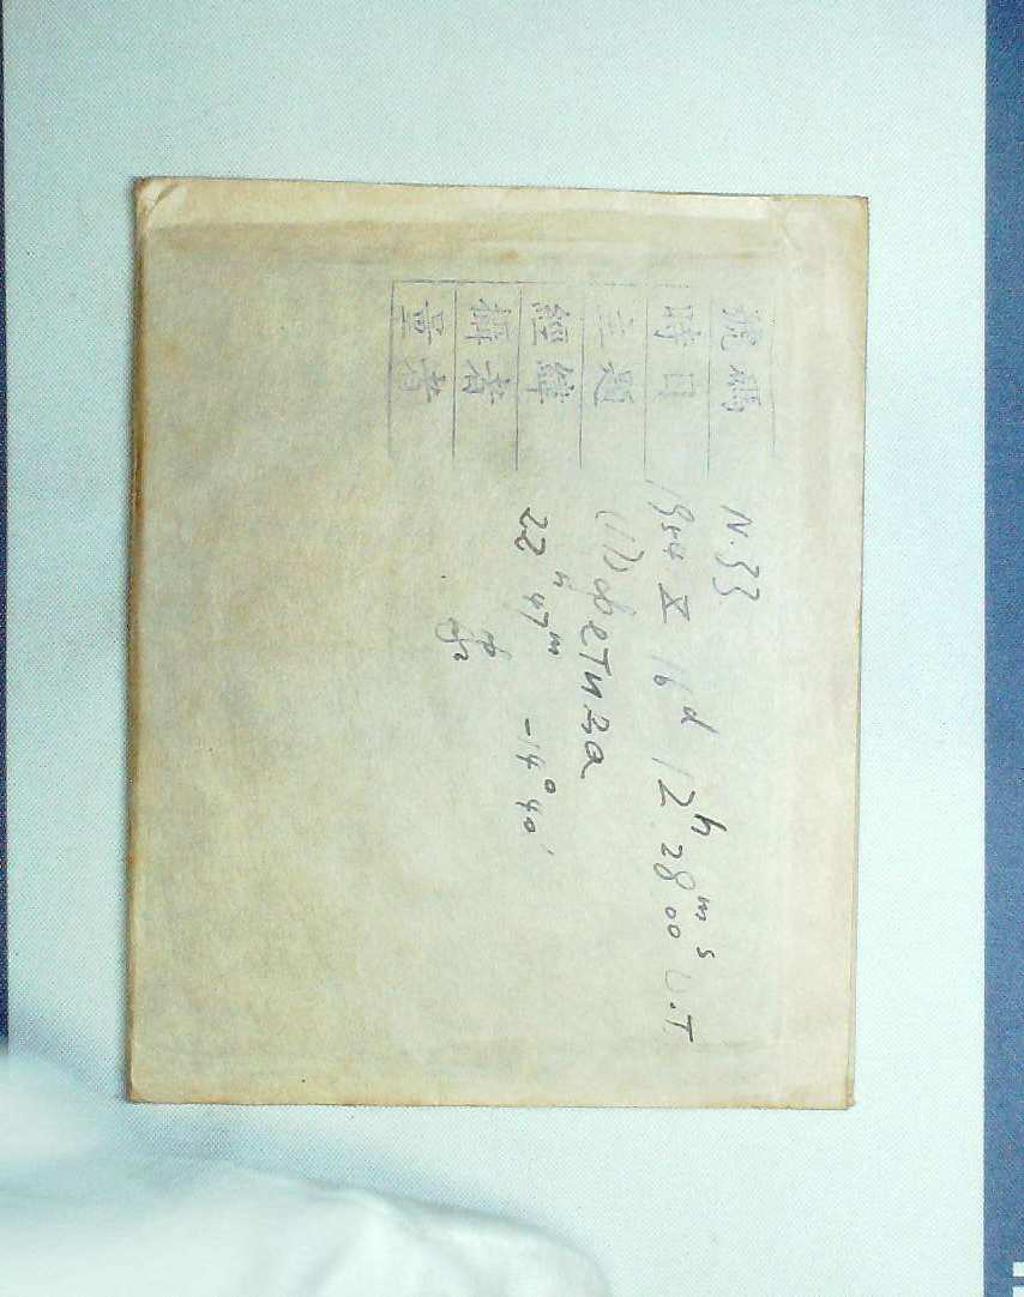 號碼 N.33
時日 1954 X 16d 12h 28m 00s U.T
主題 (17) Фетида
經緯 22h 47m -14°40'
攝者
量者